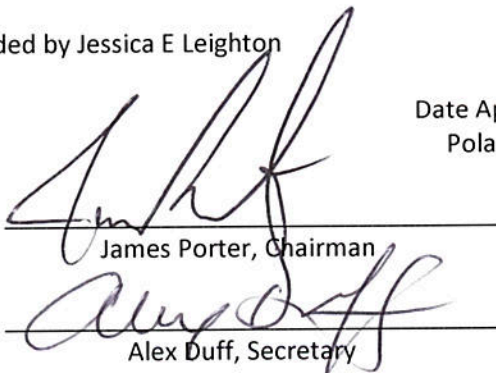 ded by Jessica E Leighton
Date Ap
Pola
James Porter, Chairman
Alex Duff, Secretary